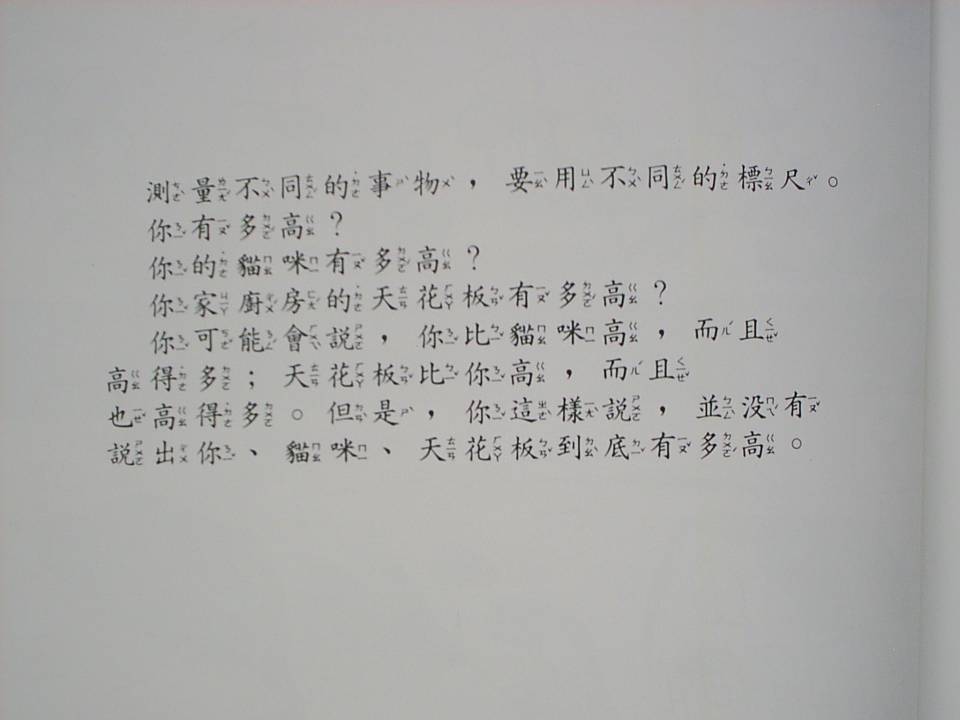 測量不同的事物，要用不同的標尺。
你有多高？
你的貓咪有多高？
你家廚房的天花板有多高？
你可能會說，你比貓咪高，而且
高得多；天花板比你高，而且
也高得多。但是，你這樣說，並没有
說出你、貓咪、天花板到底有多高。